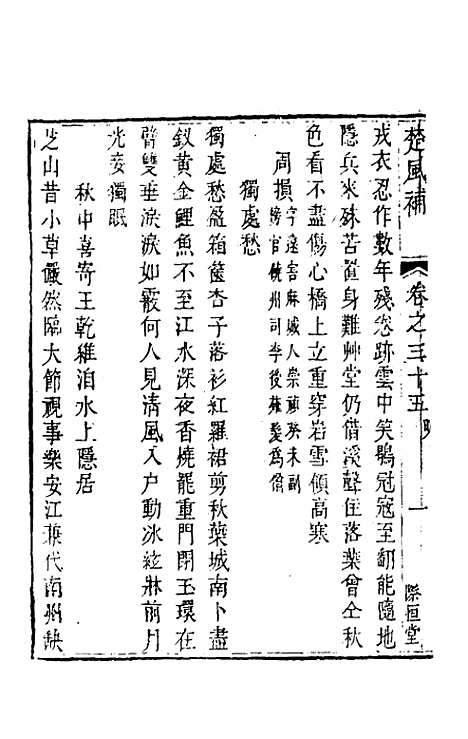 楚風補　卷之三十五　明　一　際恒堂
戎衣忍作數年殘卷跡雲中笑鶡冠寇至卻能隨地
隱兵來殊苦置身難艸堂仍借溪聲住落葉曾仝秋
色看不盡傷心橋上立重穿岩雪傾高寒
周損字遠害麻城人崇禎癸未副
榜官饒州司李後薙髮為僧
獨處愁
獨處愁盈箱篋杏子落衫紅羅裙剪秋葉城南卜盡
釵黃金鯉魚不至江水深夜香燒罷重門閉玉環在
臂雙垂淚淚如霰何人見清風入户動冰絃牀前月
光妾獨眠
秋中喜寄王乾維洎水上隱居
芝山昔小草儼然臨大節視事樂安江兼代南州缺